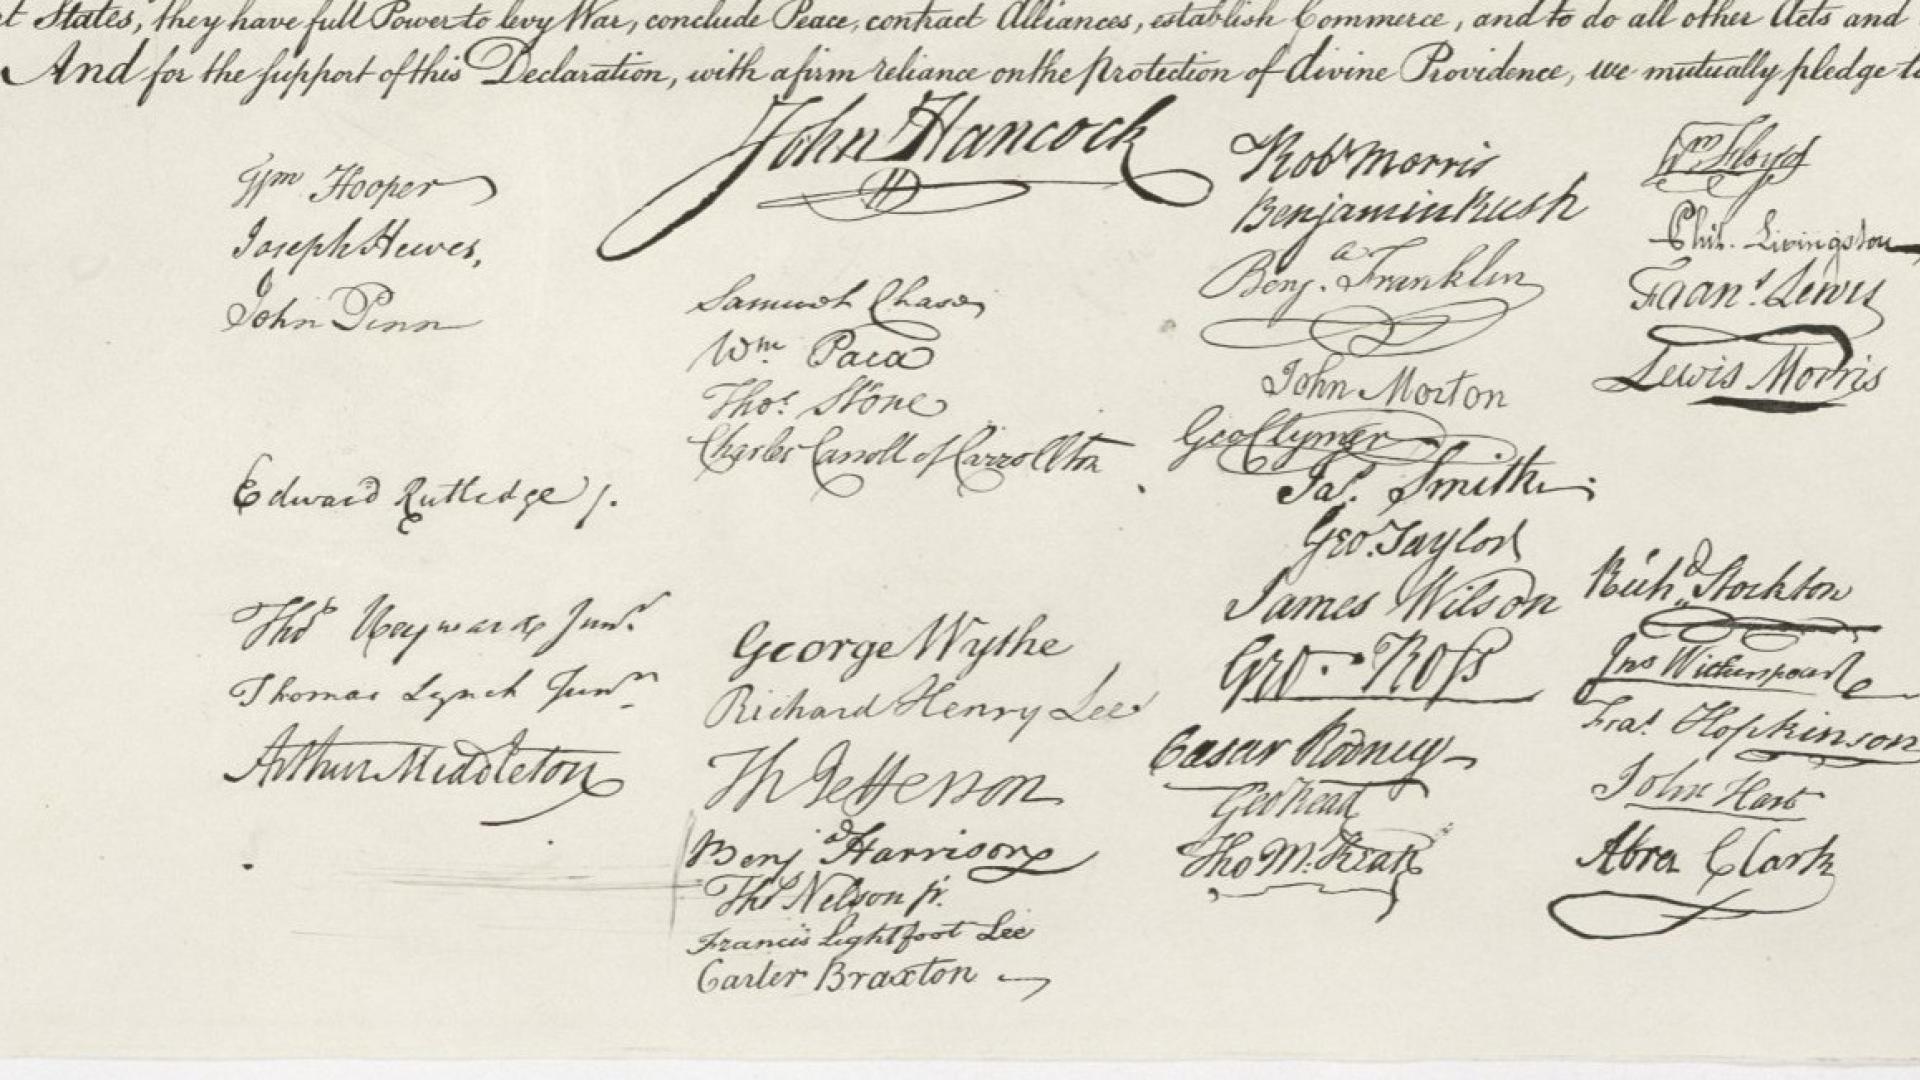 t States, they have full Power to levy War, conclude Peace, contract Alliances, establish Commerce, and to do all other Acts and
And for the support of this Declaration, with a firm reliance on the Protection of divine Providence, we mutually pledge to
John Hancock
Wm Hooper
Joseph Hewes,
John Penn
Edward Rutledge /.
Thos Heyward Junr.
Thomas Lynch Junr.
Arthur Middleton
Samuel Chase
Wm. Paca
Thos. Stone
Charles Carroll of Carrollton
George Wythe
Richard Henry Lee
Th Jefferson
Benj Harrison
Thos Nelson jr.
Francis Lightfoot Lee
Carter Braxton
Robt Morris
Benjamin Rush
Benja. Franklin
John Morton
Geo Clymer
Jas. Smith.
Geo. Taylor
James Wilson
Geo. Ross
Caesar Rodney
Geo Read
Tho M:Kean
Wm Floyd
Phil. Livingston
Frans. Lewis
Lewis Morris
Richd. Stockton
Jno Witherspoon
Fras. Hopkinson
John Hart
Abra Clark